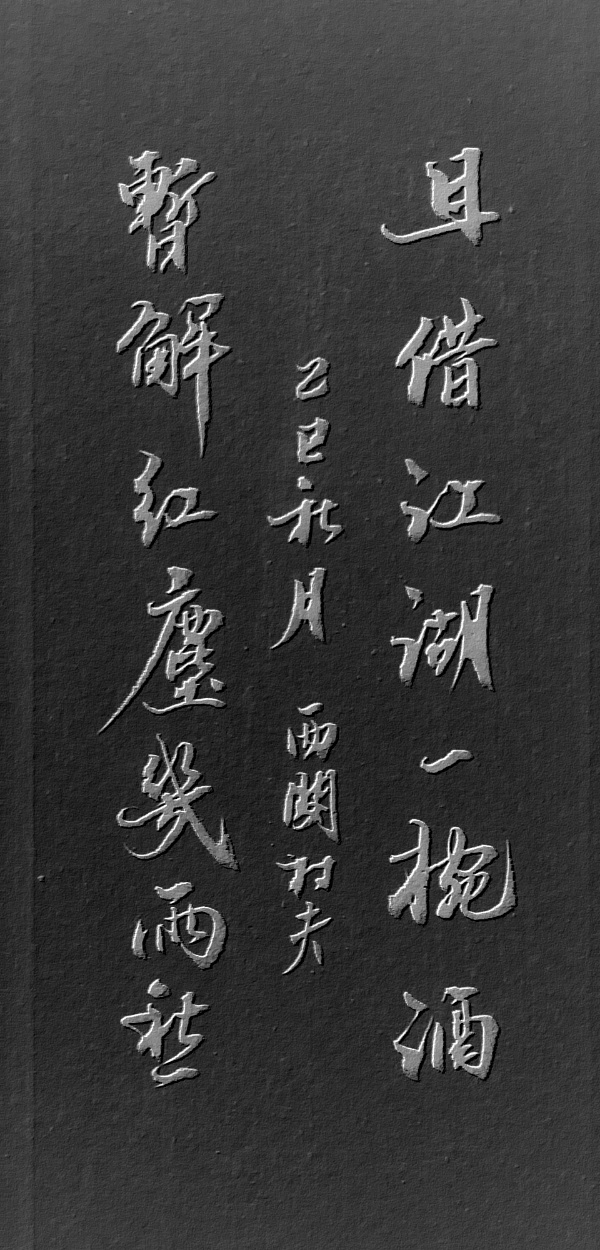 且借江湖一椀酒
暫解紅塵幾兩愁
乙巳秋月 西關村夫